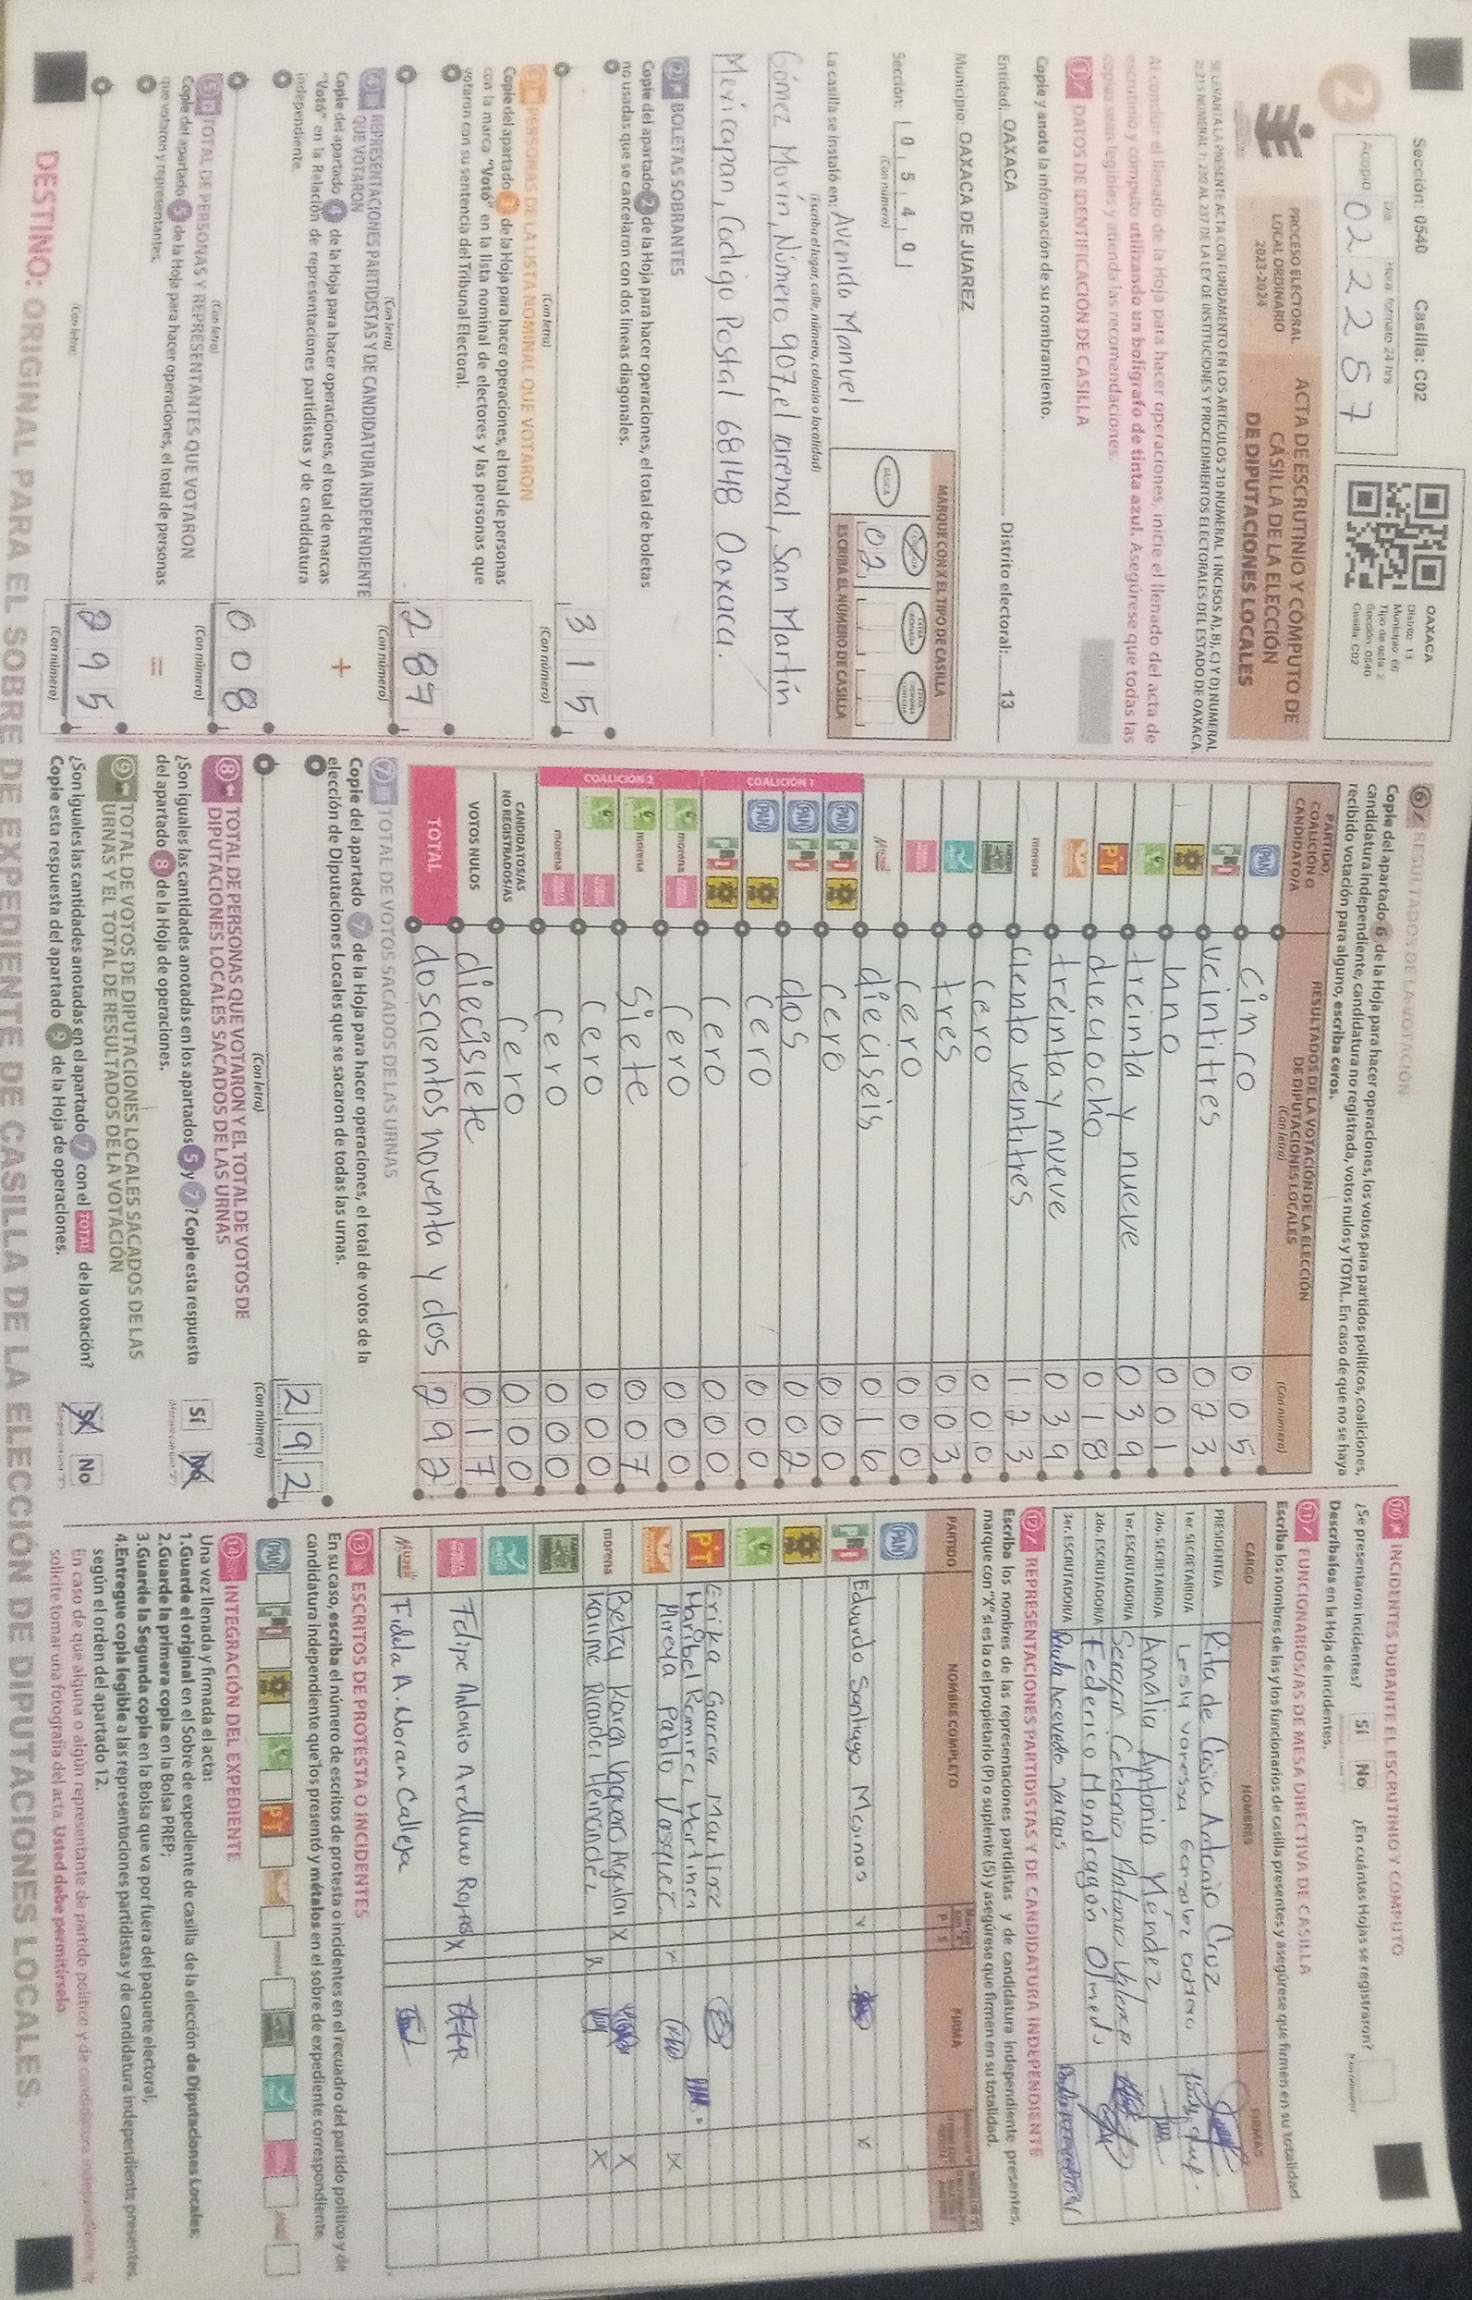 Sección: 0540 Casilla: C02
2
Día Hora formato 24 hrs
Acopio 02 2257
OAXACA
Distrito: 13
Tipo de acta: 2
Sección: 0540
Casilla: C02
PROCESO ELECTORAL
LOCAL ORDINARIO
2023-2024
ACTA DE ESCRUTINIO Y CÓMPUTO DE
CASILLA DE LA ELECCIÓN
DE DIPUTACIONES LOCALES
SE LEVANTA LA PRESENTE ACTA CON FUNDAMENTO EN LOS ARTÍCULOS 210 NUMERAL 1 INCISOS A), B), C) Y D) NUMERAL
2; 215 NUMERAL 1; 230 AL 237 DE LA LEY DE INSTITUCIONES Y PROCEDIMIENTOS ELECTORALES DEL ESTADO DE OAXACA.
Al concluir el llenado de la Hoja para hacer operaciones, inicie el llenado del acta de
escrutinio y cómputo utilizando un bolígrafo de tinta azul. Asegúrese que todas las
copias sean legibles y atienda las recomendaciones.
1 DATOS DE IDENTIFICACIÓN DE CASILLA
Copie y anote la información de su nombramiento.
Entidad: OAXACA Distrito electoral: 13
Municipio: OAXACA DE JUAREZ
Sección: 0 5 4 0
(Con número)
MARQUE CON X EL TIPO DE CASILLA
BÁSICA
02
ESCRIBA EL NÚMERO DE CASILLA
La casilla se instaló en: Avenida Manuel
(Escriba el lugar, calle, número, colonia o localidad)
Gómez Morín, Número 907, el arenal, San Martín
Mexicapan, Codigo Postal 68148 Oaxaca.
2 BOLETAS SOBRANTES
Copie del apartado 2 de la Hoja para hacer operaciones, el total de boletas
no usadas que se cancelaron con dos líneas diagonales.
315
(Con letra) (Con número)
3 PERSONAS DE LA LISTA NOMINAL QUE VOTARON
Copie del apartado 3 de la Hoja para hacer operaciones, el total de personas
con la marca "Votó" en la lista nominal de electores y las personas que
votaron con su sentencia del Tribunal Electoral.
287
(Con letra) (Con número)
4 REPRESENTACIONES PARTIDISTAS Y DE CANDIDATURA INDEPENDIENTE
QUE VOTARON
Copie del apartado 4 de la Hoja para hacer operaciones, el total de marcas
"Votó" en la Relación de representaciones partidistas y de candidatura
independiente.
+
008
(Con letra) (Con número)
5 TOTAL DE PERSONAS Y REPRESENTANTES QUE VOTARON
Copie del apartado 5 de la Hoja para hacer operaciones, el total de personas
que votaron y representantes.
=
295
(Con letra) (Con número)
6 RESULTADOS DE LA VOTACIÓN
Copie del apartado 6 de la Hoja para hacer operaciones, los votos para partidos políticos, coaliciones,
candidatura independiente, candidatura no registrada, votos nulos y TOTAL. En caso de que no se haya
recibido votación para alguno, escriba ceros.
PARTIDO,
COALICIÓN O
CANDIDATO/A
RESULTADOS DE LA VOTACIÓN DE LA ELECCIÓN
DE DIPUTACIONES LOCALES
(Con letra) (Con número)
PAN cinco 005
PRI veintitres 023
uno 001
treinta y nueve 039
PT dieciocho 018
treinta y nueve 039
morena ciento veintitres 123
cero 000
tres 003
cero 000
dieciseis 016
COALICIÓN 1
PAN PRI cero 000
PAN PRI dos 002
PAN cero 000
PRI cero 000
COALICIÓN 2
morena cero 000
morena siete 007
cero 000
morena cero 000
CANDIDATOS/AS
NO REGISTRADOS/AS cero 000
VOTOS NULOS diecisiete 017
TOTAL doscientos noventa y dos 292
7 TOTAL DE VOTOS SACADOS DE LAS URNAS
Copie del apartado 7 de la Hoja para hacer operaciones, el total de votos de la
elección de Diputaciones Locales que se sacaron de todas las urnas.
292
(Con letra) (Con número)
8 TOTAL DE PERSONAS QUE VOTARON Y EL TOTAL DE VOTOS DE
DIPUTACIONES LOCALES SACADOS DE LAS URNAS
¿Son iguales las cantidades anotadas en los apartados 5 y 7? Copie esta respuesta
del apartado 8 de la Hoja de operaciones.
Sí No
9 TOTAL DE VOTOS DE DIPUTACIONES LOCALES SACADOS DE LAS
URNAS Y EL TOTAL DE RESULTADOS DE LA VOTACIÓN
¿Son iguales las cantidades anotadas en el apartado 7 con el TOTAL de la votación?
Copie esta respuesta del apartado 9 de la Hoja de operaciones.
Sí No
10 INCIDENTES DURANTE EL ESCRUTINIO Y CÓMPUTO
¿Se presentaron incidentes? Sí No ¿En cuántas Hojas se registraron?
Descríbalos en la Hoja de Incidentes.
11 FUNCIONARIOS/AS DE MESA DIRECTIVA DE CASILLA
Escriba los nombres de las y los funcionarios de casilla presentes y asegúrese que firmen en su totalidad.
CARGO NOMBRES FIRMAS
PRESIDENTE/A Rita de Casia Antonio Cruz
1er. SECRETARIO/A Lesly Vanessa Gonzalez
2do. SECRETARIO/A Amalia Antonio Méndez
1er. ESCRUTADOR/A Serapio Celedonio Antonio
2do. ESCRUTADOR/A Federico Mondragón Olmedo
3er. ESCRUTADOR/A Paula Acevedo Vargas
12 REPRESENTACIONES PARTIDISTAS Y DE CANDIDATURA INDEPENDIENTE
Escriba los nombres de las representaciones partidistas y de candidatura independiente presentes,
marque con "X" si es la o el propietario (P) o suplente (S) y asegúrese que firmen en su totalidad.
PARTIDO NOMBRE COMPLETO P S FIRMA
PAN
PRI Eduardo Santiago Mesinas
PT Erika Garcia Martinez
Maribel Ramirez Martinez
Mireda Pablo Vasquez
morena Betzy Karen Aguilar X X
Karime Ricardez Hernández X X
Felipe Antonio Arellano Rojas X
Fidela A. Moran Calleja
13 ESCRITOS DE PROTESTA O INCIDENTES
En su caso, escriba el número de escritos de protesta o incidentes en el recuadro del partido político y de
candidatura independiente que los presentó y métalos en el sobre de expediente correspondiente.
PAN PRI PT morena
14 INTEGRACIÓN DEL EXPEDIENTE
Una vez llenada y firmada el acta:
1. Guarde el original en el Sobre de expediente de casilla de la elección de Diputaciones Locales;
2. Guarde la primera copia en la Bolsa PREP;
3. Guarde la Segunda copia en la Bolsa que va por fuera del paquete electoral;
4. Entregue copia legible a las representaciones partidistas y de candidatura independiente presentes,
según el orden del apartado 12.
En caso de que alguna o algún representante de partido político y de candidatura independiente
solicite tomar una fotografía del acta. Usted debe permitírselo.
DESTINO: ORIGINAL PARA EL SOBRE DE EXPEDIENTE DE CASILLA DE LA ELECCIÓN DE DIPUTACIONES LOCALES.